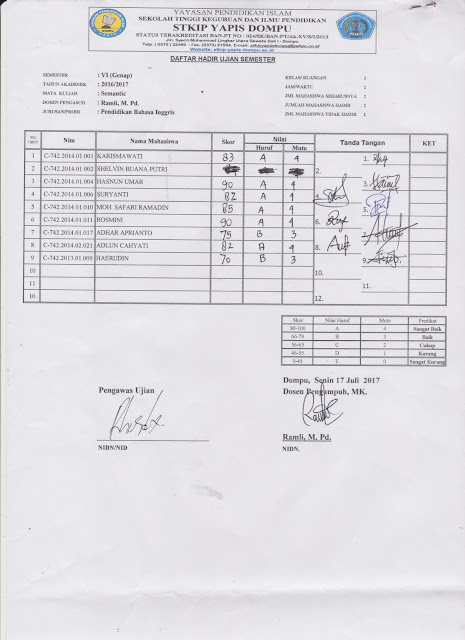 YAYASAN PENDIDIKAN ISLAM
SEKOLAH TINGGI KEGURUAN DAN ILMU PENDIDIKAN
STKIP YAPIS DOMPU
DAFTAR HADIR UJIAN SEMESTER
SEMESTER : VI (Genap)
TAHUN AKADEMIK : 2016/2017
MATA KULIAH : Semantic
DOSEN PENGASUH : Ramli, M. Pd.
JURUSAN/PRODI : Pendidikan Bahasa Inggris
KELAS/RUANGAN :
JAM/WAKTU :
JML MAHASISWA SEHARUSNYA :
JUMLAH MAHASISWA HADIR :
JML MAHASISWA TIDAK HADIR :
NO. URUT Nim Nama Mahasiswa Skor Nilai Tanda Tangan KET
Huruf Mutu
1 C-742.2014.01.001 KARISMAWATI 83 A 4 1.
2 C-742.2014.01.002 SHELVIN BUANA PUTRI 2.
3 C-742.2014.01.004 HASNUN UMAR 90 A 4 3.
4 C-742.2014.01.006 SURYANTI 82 A 4 4.
5 C-742.2014.01.010 MOH. SAFARI RAMADIN 85 A 4 5.
6 C-742.2014.01.011 ROSMINI 90 A 4 6.
7 C-742.2014.01.017 ADHAR APRIANTO 75 B 3 7.
8 C-742.2014.02.021 ADLUN CAHYATI 82 A 4 8.
9 C-742.2013.01.009 HAERUDIN 70 B 3 9.
10 10.
11 11.
10 12.
Skor Nilai Huruf Mutu Predikat
80-100 A 4 Sangat Baik
66-79 B 3 Baik
56-65 C 2 Cukup
46-55 D 1 Kurang
0-45 E 0 Sangat Kurang
Dompu, Senin 17 Juli 2017
Pengawas Ujian Dosen Pengampuh, MK.
Ramli, M. Pd.
NIDN/NID NIDN.